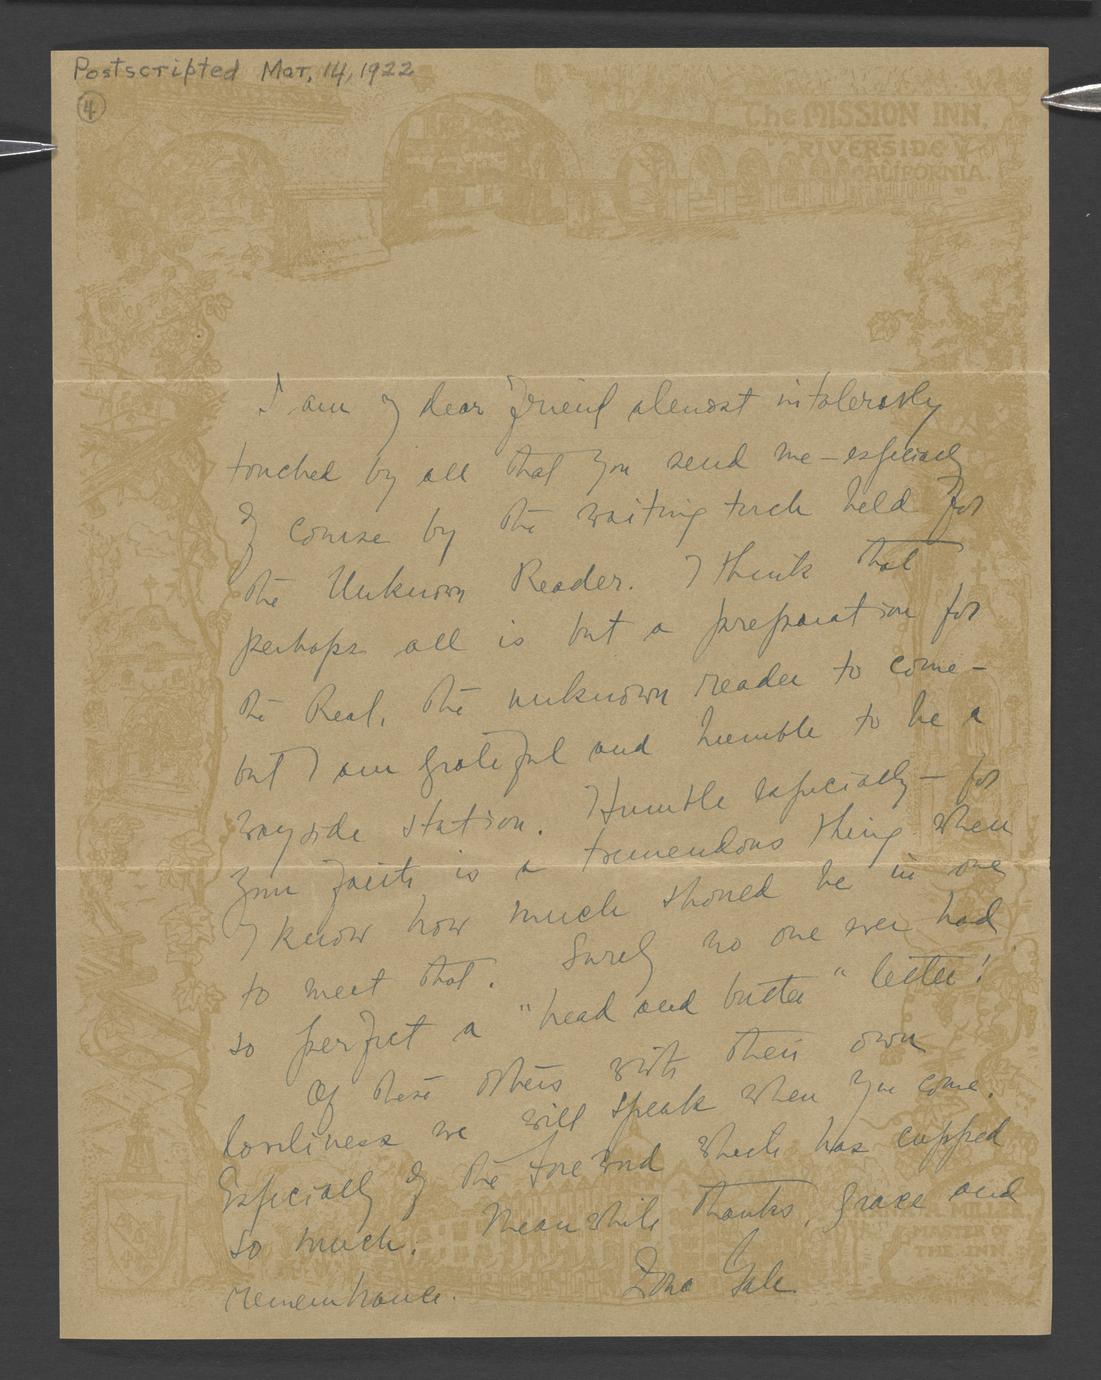 Postscripted Mar. 14, 1922
4
The MISSION INN,
RIVERSIDE
CALIFORNIA.
I am my dear friend almost intolerably
touched by all that you send me – especially
of course by the waiting torch held for
the Unknown Reader. I think that
perhaps all is but a preparation for
the Real, the unknown reader to come –
but I am grateful and humble to be a
wayside station. Humble especially – for
your faith is a tremendous thing when
I know how much should be in one
to meet that. Surely no one ever had
so perfect a "bread and butter" letter!
Of these others with their own
loveliness we will speak when you come.
Especially of the foreword which has cupped
so much. Meanwhile thanks, grace and
remembrance. Zona Gale
MILLER,
MASTER OF
THE INN